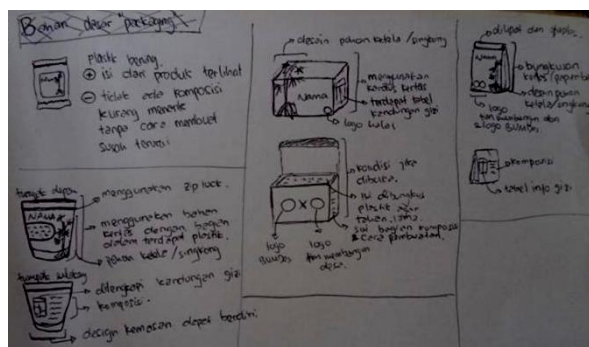 Bahan dasar "packaging"
plastik bening
NAMA
+ isi dari produk terlihat
- tidak ada komposisi
kurang menarik
tanpa cara membuat
tampak depan
menggunakan ziplock.
NAMA
menggunakan bahan
kertas dengan bagian
dalam terdapat plastik.
pohon ketela/singkong
tampak belakang
dilengkapi kandungan gizi
komposisi.
design kemasan dapat berdiri.
desain pohon ketela/singkong
Nama
menggunakan
kardus kertas
terdapat tabel
kandungan gizi
logo halal
kondisi jika
dibuka.
isi dibungkus
plastik agar
tahan lama.
sisi bagian komposisi
& cara pembuatan.
logo
logo
desa.
dilipat dan
bungkusan
kertas/
desain pohon
ketela/singkong
logo
komposisi
tabel info gizi